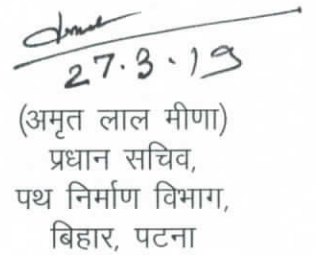 27.3.19
(अमृत लाल मीणा)
प्रधान सचिव,
पथ निर्माण विभाग,
बिहार, पटना